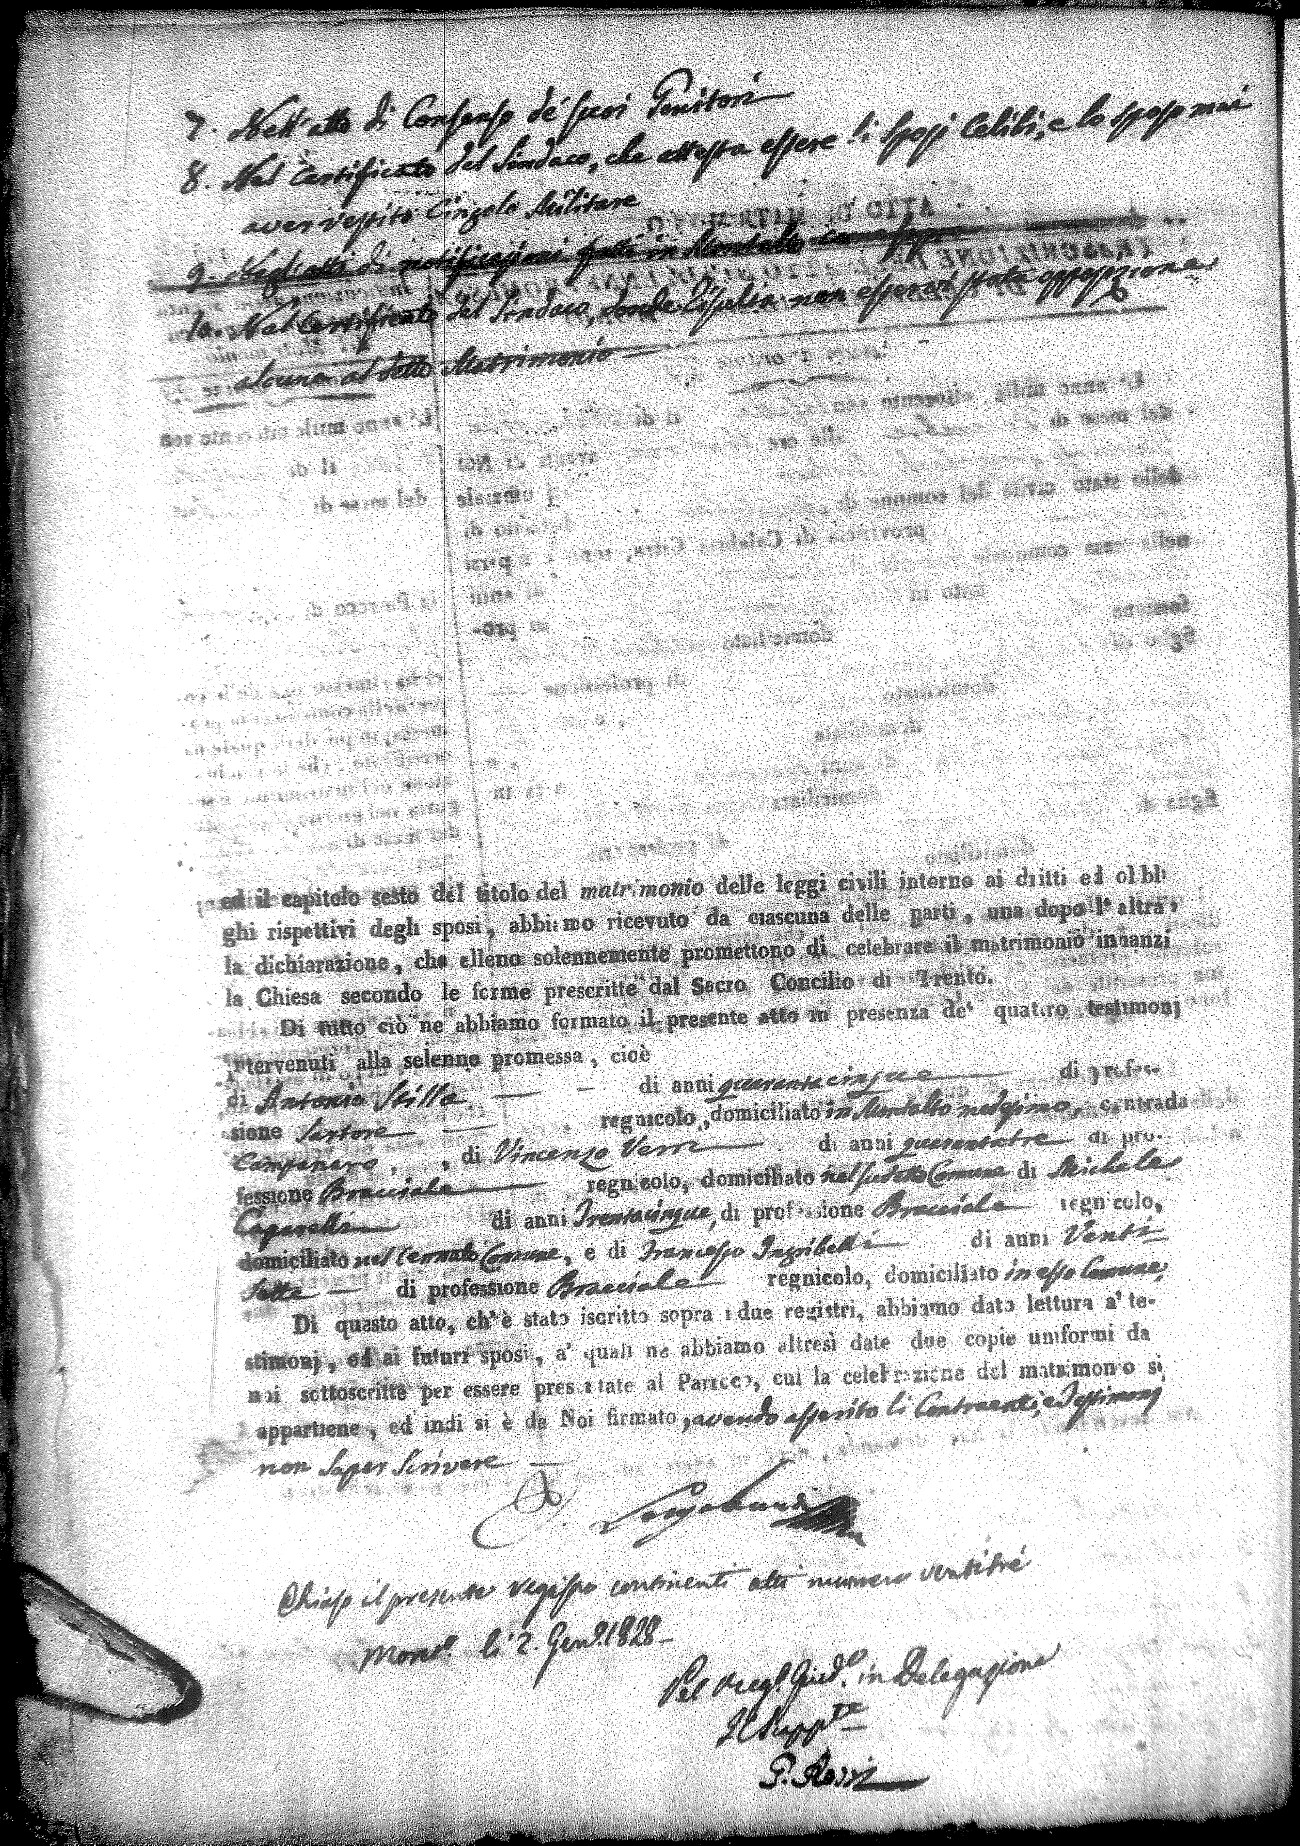 7. Nell'atto di Consenso de' suoi Genitori
8. Nel certificato del Sindaco, che attesta essere li sposi Celibi, e lo sposo mai
aver vestito Cingolo Militare
9. Negli atti di notificazioni fatti in Montalto
10. Nel Certificato del Sindaco, donde risulta non esservi stata opposizione
alcuna al detto Matrimonio
ed il capitolo sesto del titolo del matrimonio delle leggi civili intorno ai dritti ed obbli
ghi rispettivi degli sposi, abbiamo ricevuto da ciascuna delle parti, una dopo l'altra,
la dichiarazione, che elleno solennemente promettono di celebrare il matrimonio innanzi
la Chiesa secondo le forme prescritte dal Sacro Concilio di Trento.
Di tutto ciò ne abbiamo formato il presente atto in presenza de' quattro testimonj
intervenuti alla solenne promessa, cioè
di Antonio Stilla di anni quarantacinque di profes-
sione Sartore regnicolo, domiciliato in Montalto medesimo, contrada
Campanaro, di Vincenzo Verre di anni quarantatre di pro-
fessione Bracciale regnicolo, domiciliato nel sudetto Comune di Michele
Caparelli di anni Trentacinque, di professione Bracciale regnicolo,
domiciliato nel cennato Comune, e di Francesco di anni Venti
sette di professione Bracciale regnicolo, domiciliato in esso Comune,
Di questo atto, ch'è stato iscritto sopra i due registri, abbiamo dato lettura a' te-
stimonj, ed ai futuri sposi, a' quali ne abbiamo altresì date due copie uniformi da
noi sottoscritte per essere presentate al Parroco, cui la celebrazione del matrimonio si
appartiene, ed indi si è da Noi firmato, avendo asserito li Contraenti, e Testimonj
non saper scrivere
Chiuso il presente registro continenti atti numero ventitré
Mont.o li 2. Gen.o 1828
Pel Regl Giud.e in Delegazione
Il Supp.te
G. Rossi